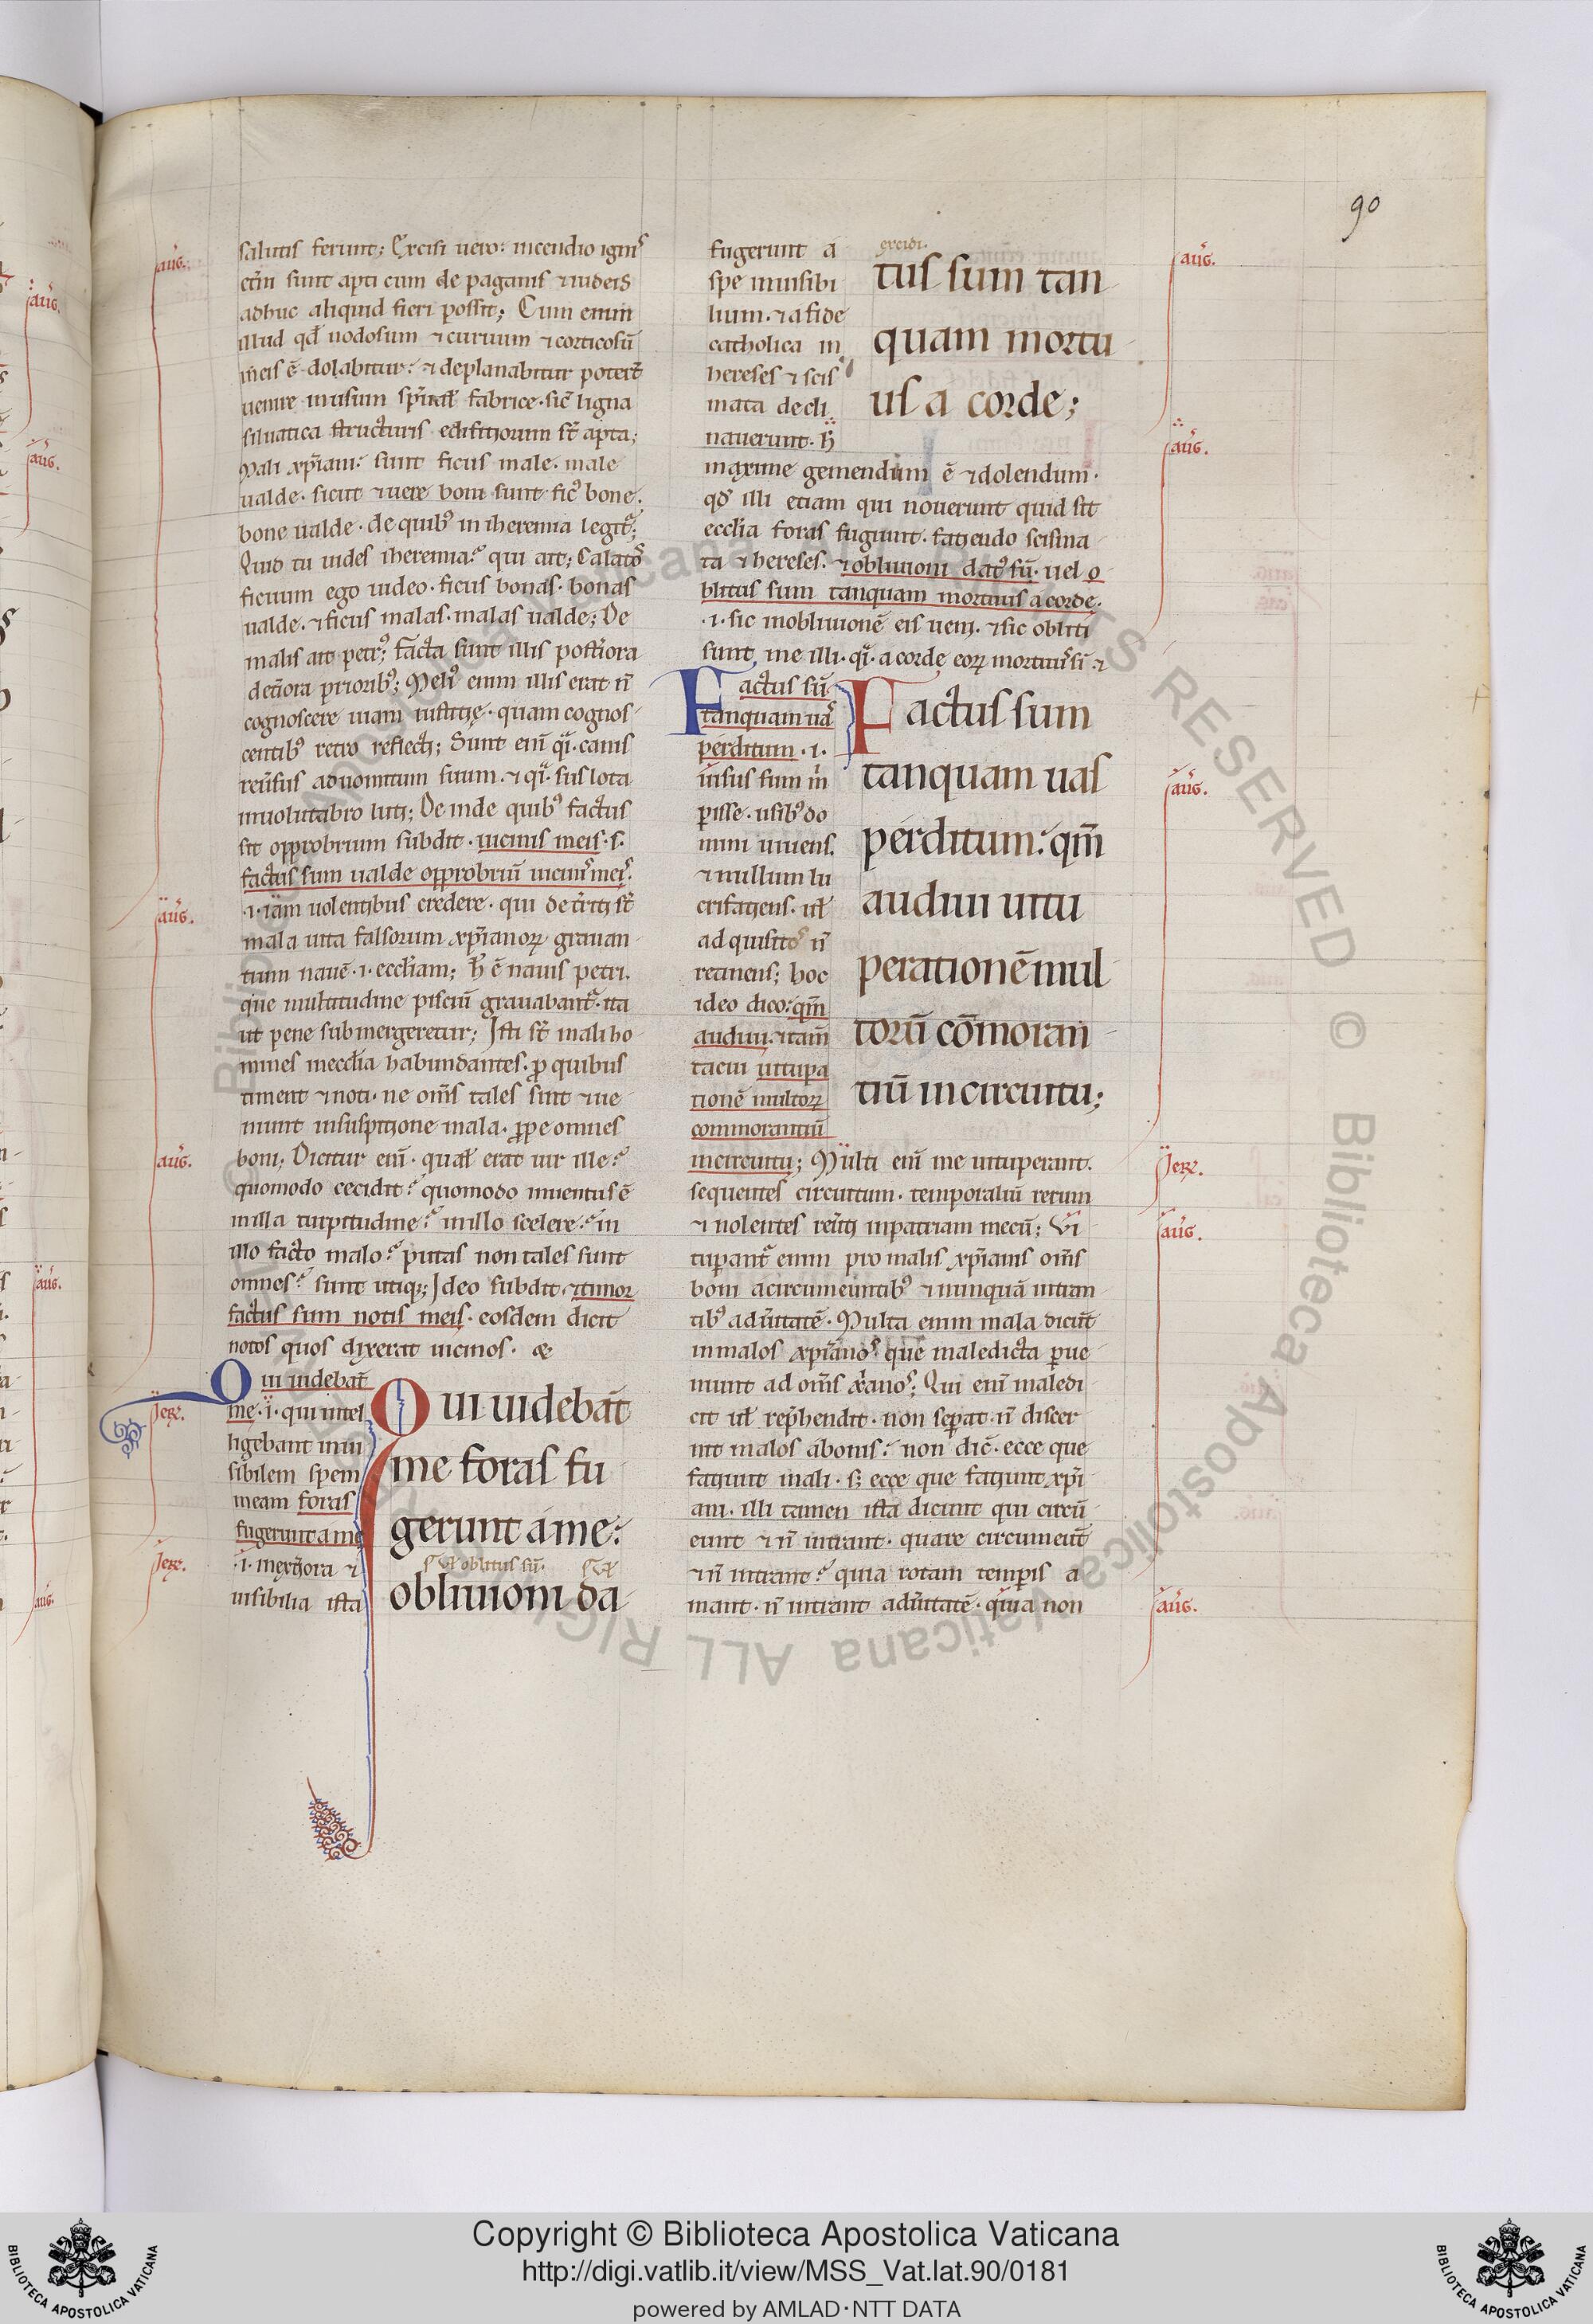 90
salutis ferunt; Excisi uero: incendio ignis
etiā sunt apti cum de paganis ⁊ iudeis
adhuc aliquid fieri possit; Cum enim
illud qd̄ nodosum ⁊ curuum ⁊ corticosū
ē dolabitur: ⁊ deplanabitur poterit
uenire in usum fabrice. sic̄ ligna
siluatica structuris edifitiorum st̄ apta;
Mali xp̄iani: sunt ficus male. male
ualde. sicut ⁊ uere boni sunt fic᷒ bone.
bone ualde. de quib᷒ in iheremia legit᷑;
Quid tu uides iheremia? qui ait; Calatos
ficuum ego uideo. ficus bonas. bonas
ualde. ⁊ ficus malas. malas ualde; De
malis ait petr᷒; facta sunt illis postiora
detiora priorib᷒; Meli᷒ enim illis erat n̄
cognoscere uiam iustitię. quam cognos
centib᷒ retro reflecti; Sunt enī qͥ. canis
reūsus ad uomitum suum. ⁊ qͥ. sus lota
in uolutabro luti; Deinde quib᷒ factus
sit opprobrium subdit. uicinis meis. s.
factus sum ualde opprobriū uicinis meis.
.i. iam uolentibus credere. qui deterriti st̄
mala uita falsorum xp̄ianoꝝ grauan
tium nauē .i. eccl̄iam; h̄ ē nauis petri.
que multitudine pisciū grauabant᷑. ita
ut pene submergeretur; Isti st̄ mali ho
mines in eccl̄ia habundantes. ꝓ quibus
timent ⁊ noti. ne om̄s tales sint ⁊ ue
niunt in suspitione mala. ꝓpe omnes
boni; Dicitur enī. qual̄ erat uir ille?
quomodo cecidit? quomodo inuentus ē
in illa turpitudine? in illo scelere? in
illo facto malo? putas non tales sunt
omnes? sunt utiq;; Ideo subdit. ⁊ timor
factus sum notis meis. eosdem dicit
notos quos dixerat uicinos. æ
Qui uidebāt
me .i. qui intel
ligebant inui
sibilem spem
meam foras
fugerunt a me
.i. in exteriora ⁊
uisibilia ista
Qui uidebāt
me foras fu
gerunt a me:
oblitus sū.
obliuioni da
fugerunt a
spe inuisibi
lium. ⁊ a fide
catholica in
hereses ⁊ scis
mata decli
nauerunt. h̄
excidi.
tus sum tan
quam mortu
us a corde;
maxime gemendum ē ⁊ dolendum.
qd̄ illi etiam qui nouerunt quid sit
eccl̄ia foras fugiunt. fatiendo scisma
ta ⁊ hereses. ⁊ obliuioni dat᷒ sū. uel o
blitus sum tanquam mortuus a corde.
.i. sic in obliuionē eis ueni. ⁊ sic obliti
sunt me illi. qͥ. a corde eoꝝ mortuus sī. ⁊
Factus sū
tanquam uas
perditum .i.
uisus sum m̄
perisse. usib᷒ do
mini uiuens.
⁊ nullum lu
crifatiens. ul̄
adquisitos n̄
retinens; hoc
ideo dico: qm̄
audiui. ⁊ tam̄
tacui uitupa
tionē multoꝝ
commorantiū
Factus sum
tanquam uas
perditum: qm̄
audiui uitu
perationē mul
torū cōmoran
tiū in circuitu;
in circuitu; Multi enī me uituperant.
sequentes circuitum. temporaliū rerum
⁊ nolentes reūti in patriam mecū; Vi
tuperant᷑ enim pro malis xp̄ianis om̄s
boni a circumeuntib᷒ ⁊ nunquā intran
tib᷒ ad ūitatē. Multa enim mala dicūt
in malos xp̄ianos. que maledicta perue
niunt ad om̄s xp̄ianos; Qui enī maledi
cit ul̄ rep̄hendit. non separat. n̄ discer
nit malos a bonis: non dic̄. ecce que
fatiunt mali. s; ecce que fatiunt xp̄i
ani. illi tamen ista dicunt qui circū
eunt ⁊ n̄ intrant. quare circumeūt
⁊ n̄ intrant? quia rotam temporis a
mant. n̄ intrant ad ūitatē. quia non
aug.
aug.
aug.
Ier̄.
Ier̄.
aug.
aug.
aug.
Ier̄.
aug.
aug.
aug.
aug.
aug.
aug.
© Biblioteca Apostolica Vaticana ALL RIGHTS RESERVED © Biblioteca Apostolica Vaticana ALL RIGHTS RESERVED
Copyright © Biblioteca Apostolica Vaticana
http://digi.vatlib.it/view/MSS_Vat.lat.90/0181
powered by AMLAD·NTT DATA
BIBLIOTECA APOSTOLICA VATICANA
BIBLIOTECA APOSTOLICA VATICANA